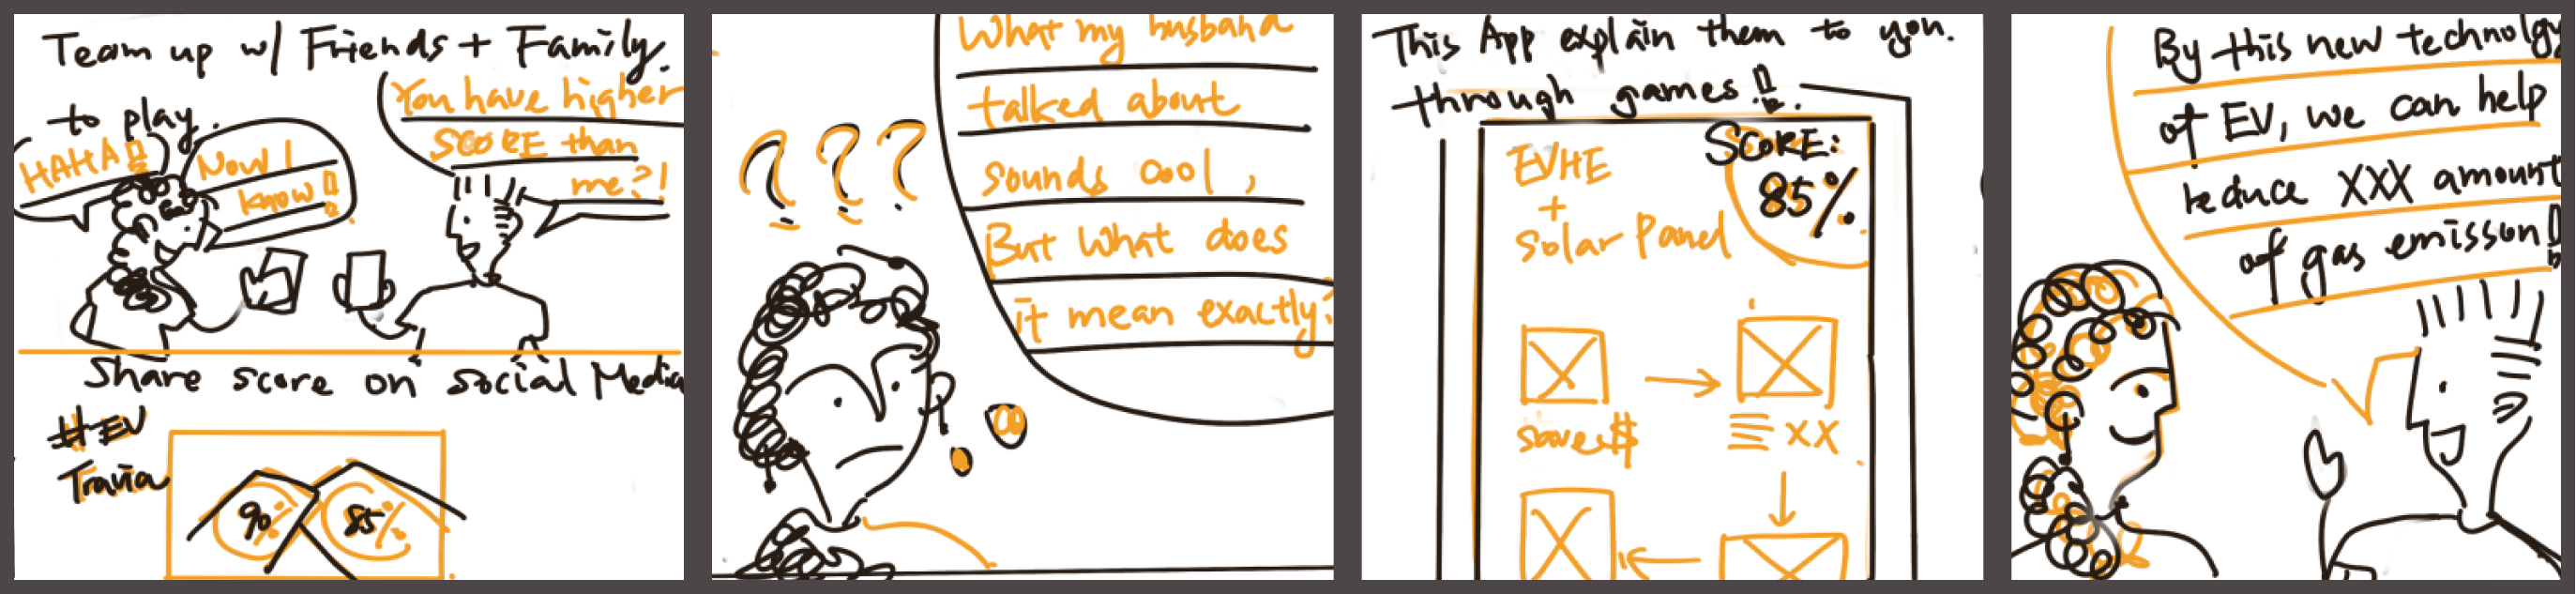 Team up w/ Friends + Family.
to play.
HAHA!!
Now I
know!!
You have higher
SCORE than
me?!
Share score on Social Media
#EV
Travia
90%
85%
???
What my husband
talked about
sounds cool,
But what does
it mean exactly?
This App explain them to you.
through games!!.
SCORE:
85%
EVHE
+
Solar Panel
save$
XX
By this new technolgy
of EV, we can help
reduce XXX amount
of gas emisson!!